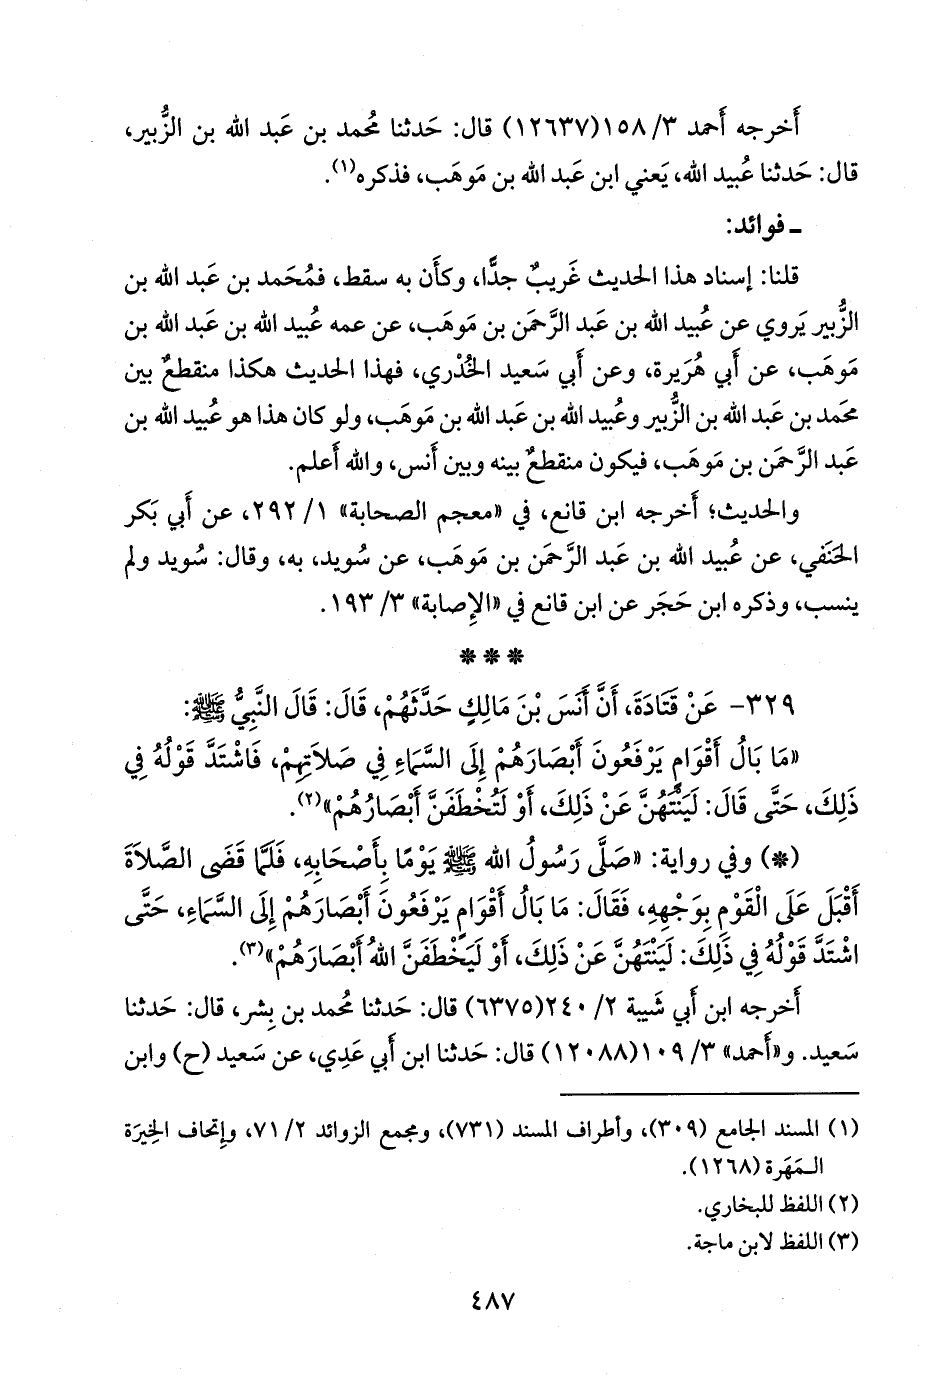 أَخرجه أَحمد ٣/ ١٥٨(١٢٦٣٧) قال: حَدثنا مُحمد بن عَبد الله بن الزُّبير،
قال: حَدثنا عُبيد الله، يَعني ابن عَبد الله بن مَوهَب، فذكره(١).
ـ فوائد:
قلنا: إسناد هذا الحديث غَريبٌ جدًّا، وكأَن به سقط، فمُحَمد بن عَبد الله بن
الزُّبير يَروي عن عُبيد الله بن عَبد الرَّحمَن بن مَوهَب، عن عمه عُبيد الله بن عَبد الله بن
مَوهَب، عن أَبي هُرَيرة، وعن أَبي سَعيد الخُدْري، فهذا الحديث هكذا منقطعٌ بين
محمد بن عَبد الله بن الزُّبير وعُبيد الله بن عَبد الله بن مَوهَب، ولو كان هذا هو عُبيد الله بن
عَبد الرَّحمَن بن مَوهَب، فيكون منقطعٌ بينه وبين أَنس، والله أَعلم.
والحديث؛ أَخرجه ابن قانع، في «معجم الصحابة» ١/ ٢٩٢، عن أَبي بَكر
الحَنَفي، عن عُبيد الله بن عَبد الرَّحمَن بن مَوهَب، عن سُويد، به، وقال: سُويد ولم
ينسب، وذكره ابن حَجَر عن ابن قانع في «الإِصابة» ٣/ ١٩٣.
* * *
٣٢٩- عَنْ قَتَادَةَ، أَنَّ أَنَسَ بْنَ مَالِكٍ حَدَّثَهُمْ، قَالَ: قَالَ النَّبِيُّ ﷺ:
«مَا بَالُ أَقْوَامٍ يَرْفَعُونَ أَبْصَارَهُمْ إِلَى السَّمَاءِ فِي صَلاَتِهِمْ، فَاشْتَدَّ قَوْلُهُ فِي
ذَلِكَ، حَتَّى قَالَ: لَيَنْتَهُنَّ عَنْ ذَلِكَ، أَوْ لَتُخْطَفَنَّ أَبْصَارُهُمْ»(٢).
(*) وفي رواية: «صَلَّى رَسُولُ الله ﷺ يَوْمًا بِأَصْحَابِهِ، فَلَمَّا قَضَى الصَّلاَةَ
أَقْبَلَ عَلَى الْقَوْمِ بِوَجْهِهِ، فَقَالَ: مَا بَالُ أَقْوَامٍ يَرْفَعُونَ أَبْصَارَهُمْ إِلَى السَّمَاءِ، حَتَّى
اشْتَدَّ قَوْلُهُ فِي ذَلِكَ: لَيَنْتَهُنَّ عَنْ ذَلِكَ، أَوْ لَيَخْطَفَنَّ اللهُ أَبْصَارَهُمْ»(٣).
أَخرجه ابن أَبي شَيبة ٢/ ٢٤٠(٦٣٧٥) قال: حَدثنا مُحمد بن بِشر، قال: حَدثنا
سَعيد. و«أَحمد» ٣/ ١٠٩(١٢٠٨٨) قال: حَدثنا ابن أَبي عَدِي، عن سَعيد (ح) وابن
(١) المسند الجامع (٣٠٩)، وأطراف المسند (٧٣١)، ومجمع الزوائد ٢/ ٧١، وإتحاف الخِيرَة
المَهَرة (١٢٦٨).
(٢) اللفظ للبخاري.
(٣) اللفظ لابن ماجة.
٤٨٧